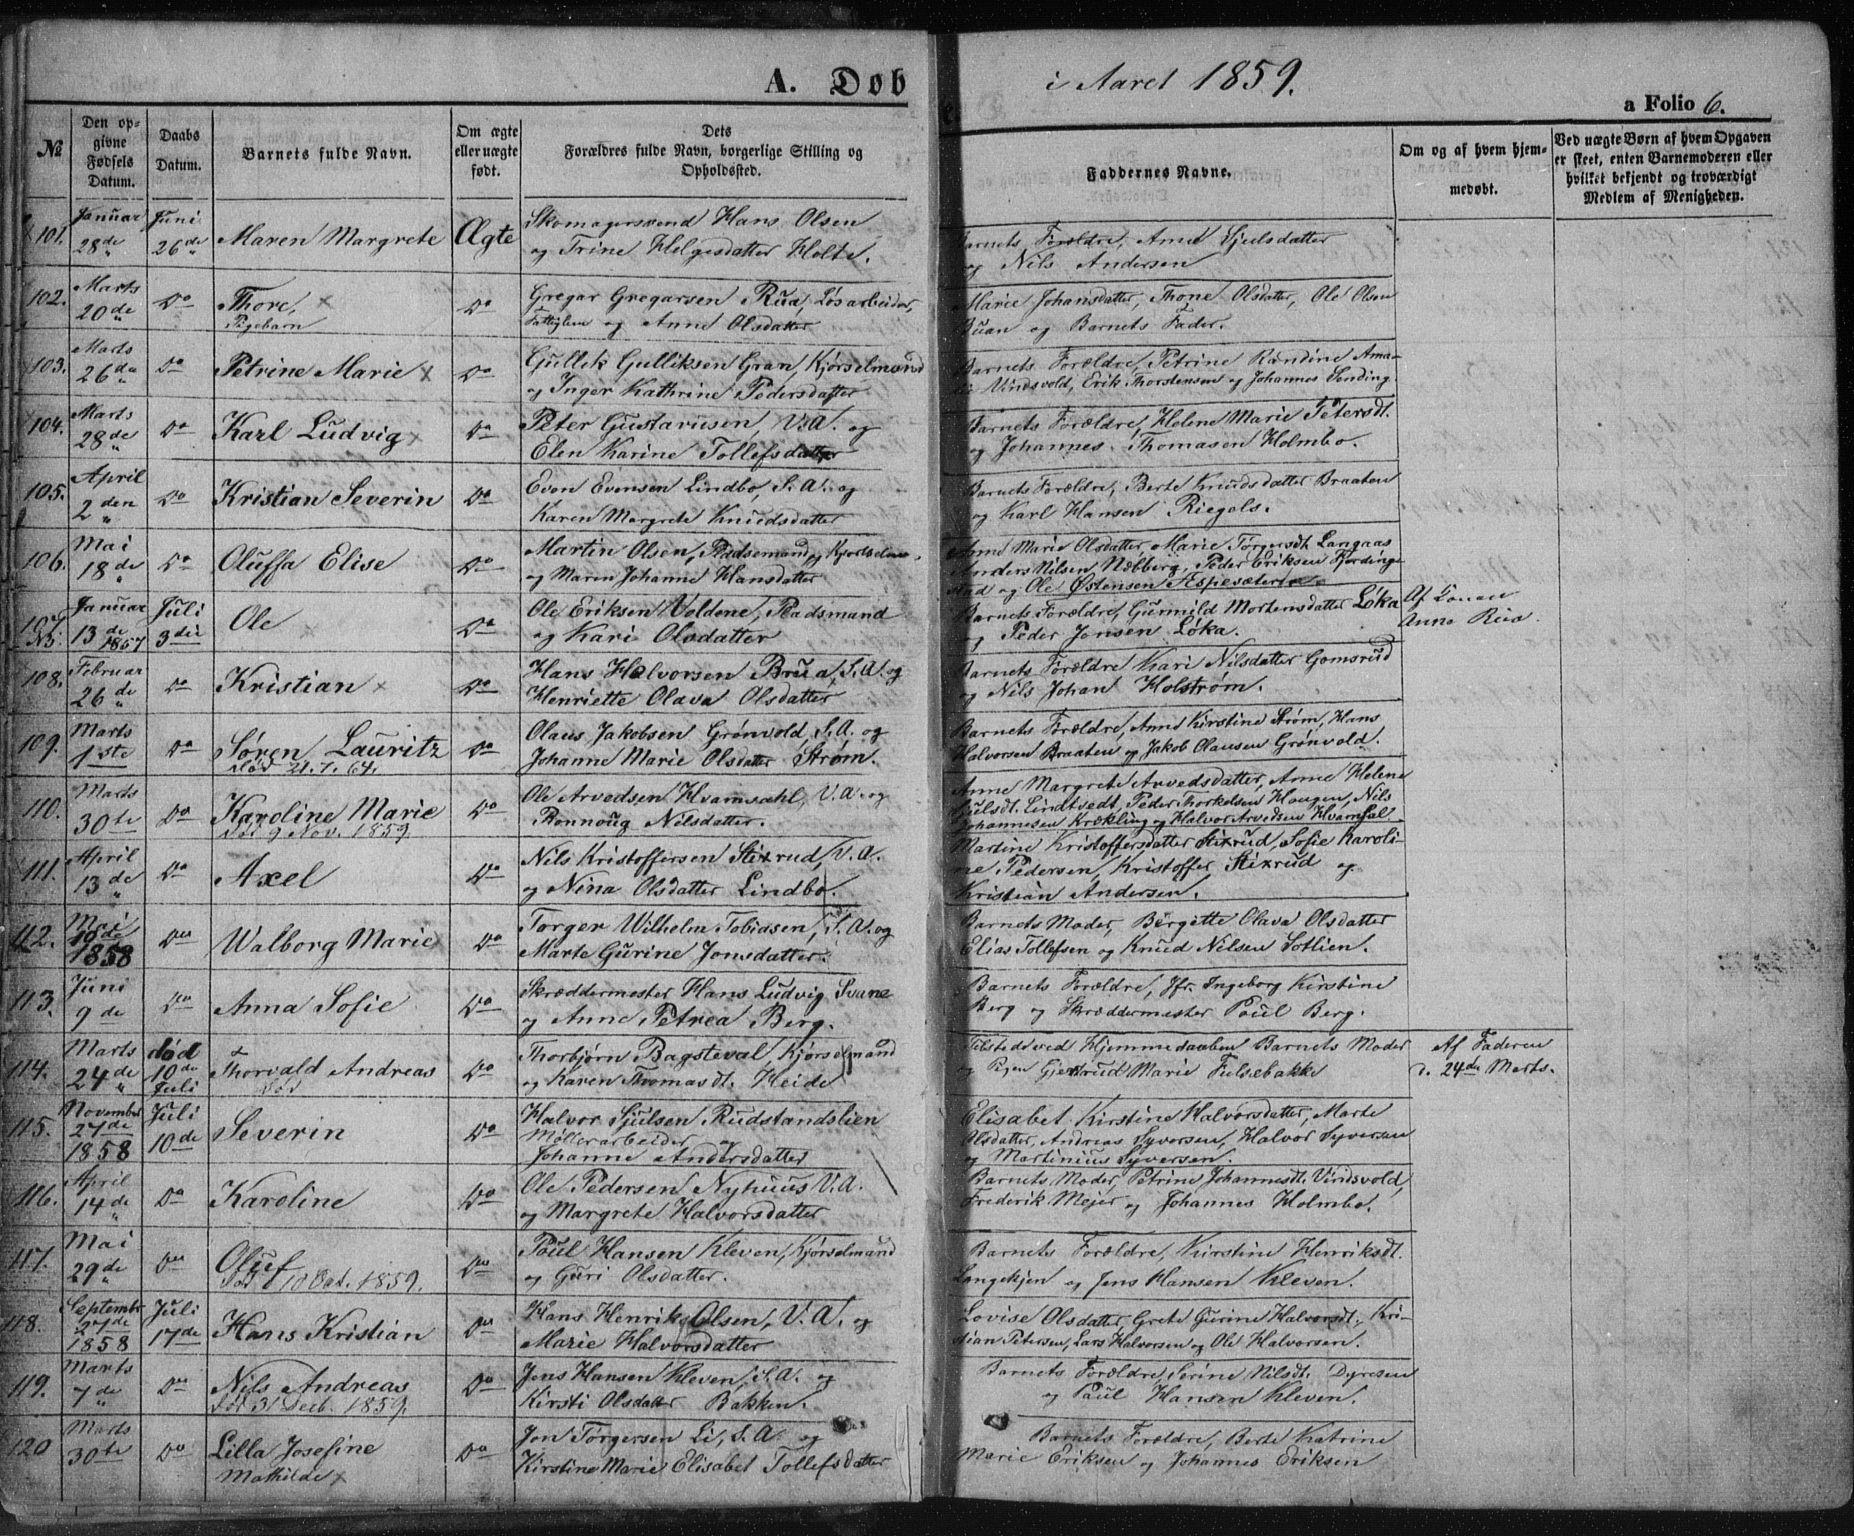 A. Døb
i Aaret 1859.
a Folio 6.
№
Den opgivne Fødsels Datum.
Daabs Datum.
Barnets fulde Navn.
Om ægte eller uægte født.
Dets Forældres fulde Navn, borgerlige Stilling og Opholdssted.
Faddernes Navne.
Om og af hvem hjemmedøbt.
Ved uægte Børn af hvem Opgaven er skeet, enten Barnemoderen eller hvilket bekjendt og troværdigt Medlem af Menigheden.
101. Januar 28de Juni 26de Maren Margrete Ægte Skomagersvend Hans Olsen
og Trine Helgesdatter Holte.
Barnets Forældre, Anne Sjulsdatter
og Nils Andersen
102. Marts 20de Do Thore, Do Gregar Gregarsen Rua, Løsarbeider,
Pigebarn Fattiglem og Anne Olsdatter
Marie Johansdatter, Thone Olsdatter, Ole Olsen
Buan og Barnets Fader.
103. Marts 26de Do Petrine Marie Do Gullik Gulliksen Gran, Kjørselmand
og Inger Kathrine Pedersdatter
Barnets Forældre, Petrine Randine Ama-
lie Vindsvold, Erik Thorstensen og Johannes Sending
104. Marts 28de Do Karl Ludvig Do Peter Gustavusen, V.A. og
Elen Karine Tollefsdatter
Barnets Forældre, Helene Marie Petersdt.
og Johannes Thomasen Holmbo.
105. April 2den Do Kristian Severin Do Even Evensen Lindbo, S.A. og
Karen Margrete Knudsdatter
Barnets Forældre, Berte Knudsdatter Braaten
og Karl Hansen Riegels.
106. Mai 18de Do Oluffa Elise Do Martin Olsen, Pladsemand og Kjørselm.
og Maren Johanne Hansdatter
Anne Marie Olsdatter, Marie Tørgersdt. Langaas
Anders Nilsen Næbberg, Peder Eriksen Fjordinge-
stad og Ole Østensen Aspesæter
107. N5: Januar 13de 1857 Juli 3die Ole Do Ole Eriksen Voldene, Pladsmand
og Kari Olsdatter
Barnets Forældre, Gunnild Mortensdatter Løka
og Peder Jonsen Løka.
Af Konen
Anne Rua.
108. Februar 26de Do Kristian Do Hans Halvorsen Brua, S.A. og
Henriette Olava Olsdatter
Barnets Forældre Kari Nilsdatter Gomsrud
og Nils Johan Holstrøm.
109. Marts 1ste Do Søren Lauritz Do Olaus Jakobsen Grønvold, S.A. og
død 21.7.64. Johanne Marie Olsdatter Strøm.
Barnets Forældre, Anne Kirstine Strøm, Hans
Halvorsen Braaten og Jakob Olausen Grønvold.
110. Marts 30te Do Karoline Marie Do Ole Arvedsen Hvamsahl, V.A. og
død 9 Nov. 1859. Rønnoug Nilsdatter.
Anne Margrete Arvedsdatter, Anne Helene
Sjulsdt. Lindtvedt, Peder Thorkelsen Haugen, Nils
Johannesen Krækling og Halvor Arvedsen Hvamsal
111. April 13de Do Axel Do Nils Kristoffersen Stixrud, V.A.
og Nina Olsdatter Lindbo.
Martine Kristoffersdatter Stixrud, Sofie Karoli-
ne Pedersen, Kristoffer Stixrud og
Kristian Andersen.
112. Mai 1858 Do Walborg Marie Do Torger Wilhelm Tobiasen, S.A. og
Marte Gurine Jonsdatter.
Barnets Moder, Bergitte Olava Olsdatter
Elias Tollefsen og Knud Nilsen Sotlien.
113. Juni 9de Do Anna Sofie Do Skræddermester Hans Ludvig Svane
og Anne Petrea Berg.
Barnets Forældre, Jfr. Ingeborg Kirstine
Berg og Skræddermester Paul Berg.
114. Marts 24de død 10de Juli Thorvald Andreas Do Thorbjørn Bagsteval, Kjørselmand
død og Karen Thomasdt. Heide
Tilstede ved Hjemmedaaben Barnets Moder
og Pigen Gjertrud Marie Fulsebakke
Af Faderen
d. 24de Marts.
115. November 27de 1858 Juli 10de Severin Do Halvor Sjulsen Rudstandslien
Møllerarbeider og
Johanne Andersdatter
Elisabet Kirstine Halvorsdatter, Marte
Olsdatter, Andreas Syversen, Halvor Syversen
og Martinius Syversen.
116. April 14de Do Karoline Do Ole Pedersen Nyhuus V.A.
og Margrete Halvorsdatter
Barnets Moder, Petrine Johannesdt. Vindsvold,
Frederik Mejer og Johannes Holmbo.
117. Mai 29de Do Oluf Do Paul Hansen Kleven, Kjørselmand
død 10 Oct. 1859. og Guri Olsdatter.
Barnets Forældre, Kirstine Henriksdt.
Langekjen og Jens Hansen Kleven.
118. Septembr 27de 1858 Juli 17de Hans Kristian Do Hans Henrik Olsen, V.A. og
Marie Halvorsdatter
Lovise Olsdatter, Grete Gurine Halvorsdt., Kri-
stian Petersen, Lars Halvorsen og Ole Halvorsen.
119. Marts 7de Do Nils Andreas Do Jens Hansen Kleven, S.A. og
død 31 Decb. 1859. Kirsti Olsdatter Bakken.
Barnets Forældre, Serine Nilsdt. Dyresen
og Paul Hansen Kleven.
120 Marts 30te Do Lilla Josefine Do Jon Tørgersen Li, S.A. og
Mathilde Kirstine Marie Elisabet Tollefsdatter
Barnets Forældre, Berte Katrine
Marie Eriksen og Johannes Eriksen